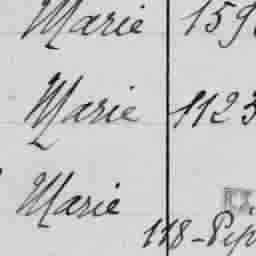 Marie 159
Marie 1123
Marie
118-Pep